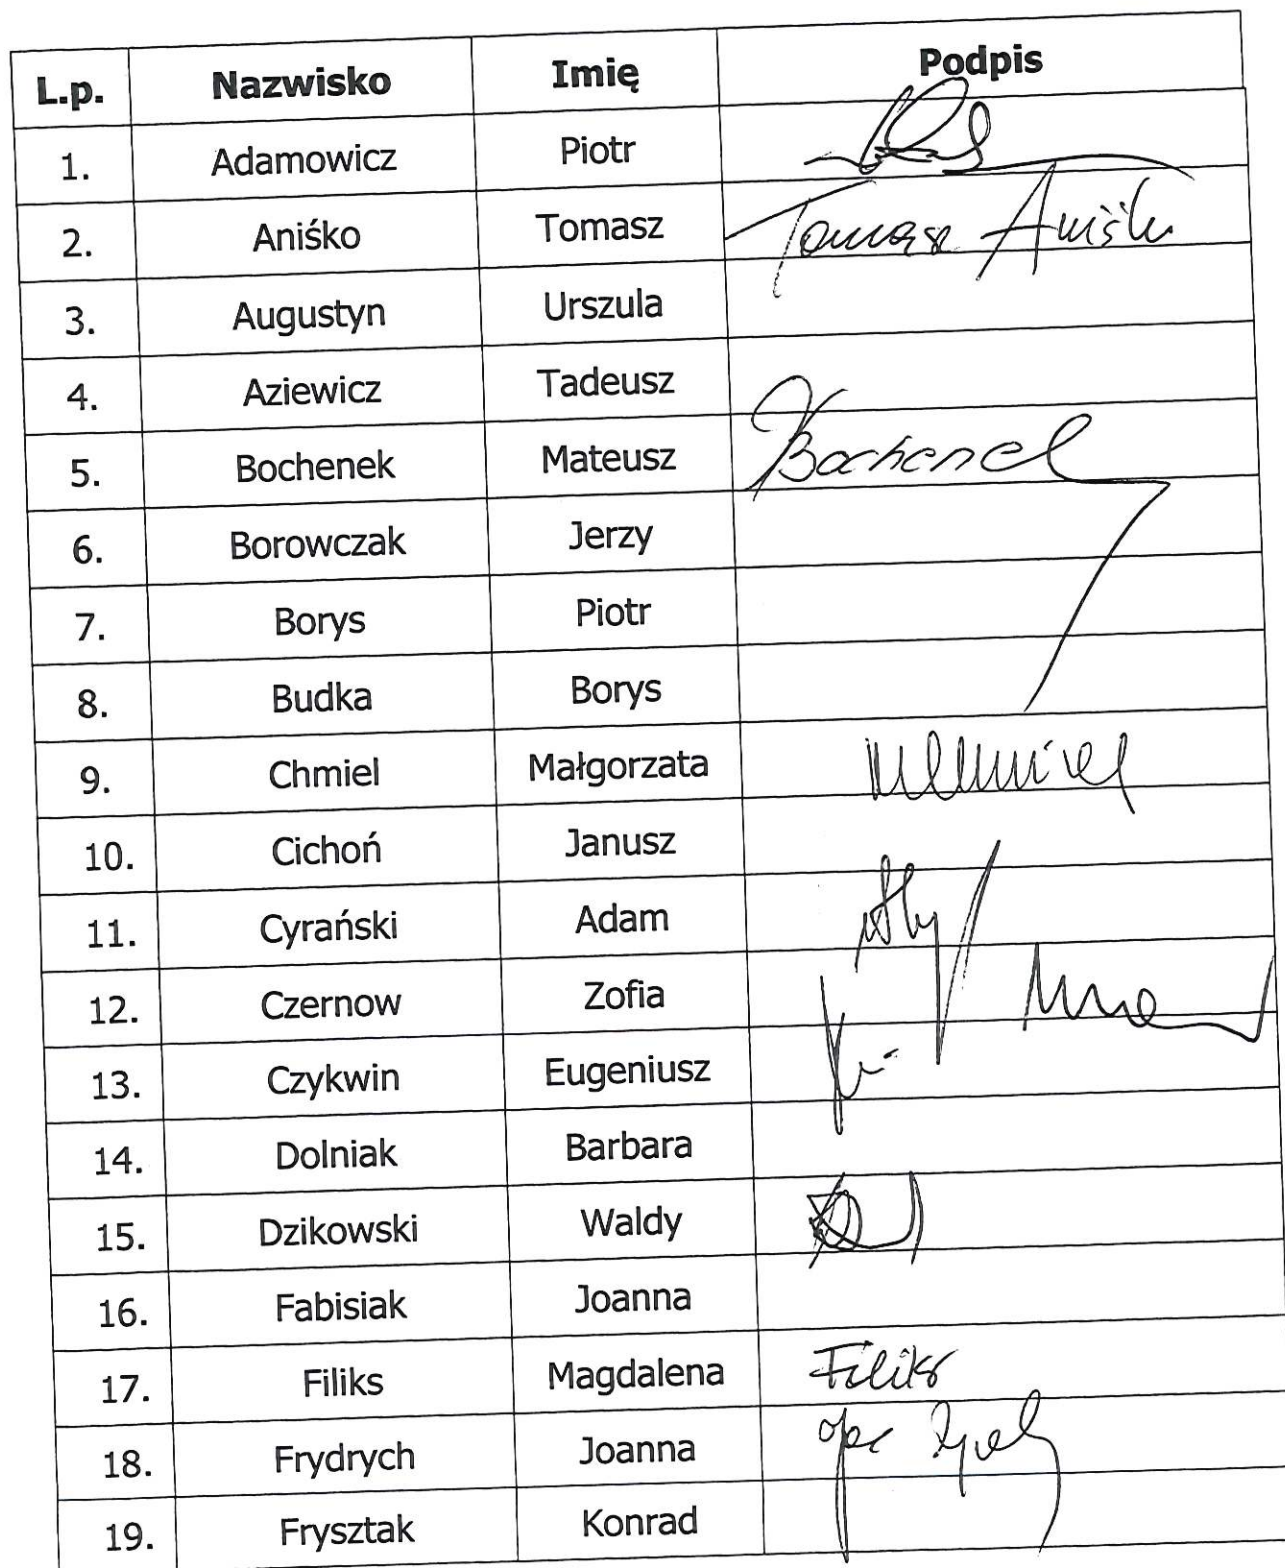 L.p. Nazwisko Imię Podpis
1. Adamowicz Piotr
2. Aniśko Tomasz Tomasz Aniśko
3. Augustyn Urszula
4. Aziewicz Tadeusz
5. Bochenek Mateusz Bochenek
6. Borowczak Jerzy
7. Borys Piotr
8. Budka Borys
9. Chmiel Małgorzata
10. Cichoń Janusz
11. Cyrański Adam
12. Czernow Zofia
13. Czykwin Eugeniusz
14. Dolniak Barbara
15. Dzikowski Waldy
16. Fabisiak Joanna
17. Filiks Magdalena Filiks
18. Frydrych Joanna
19. Frysztak Konrad